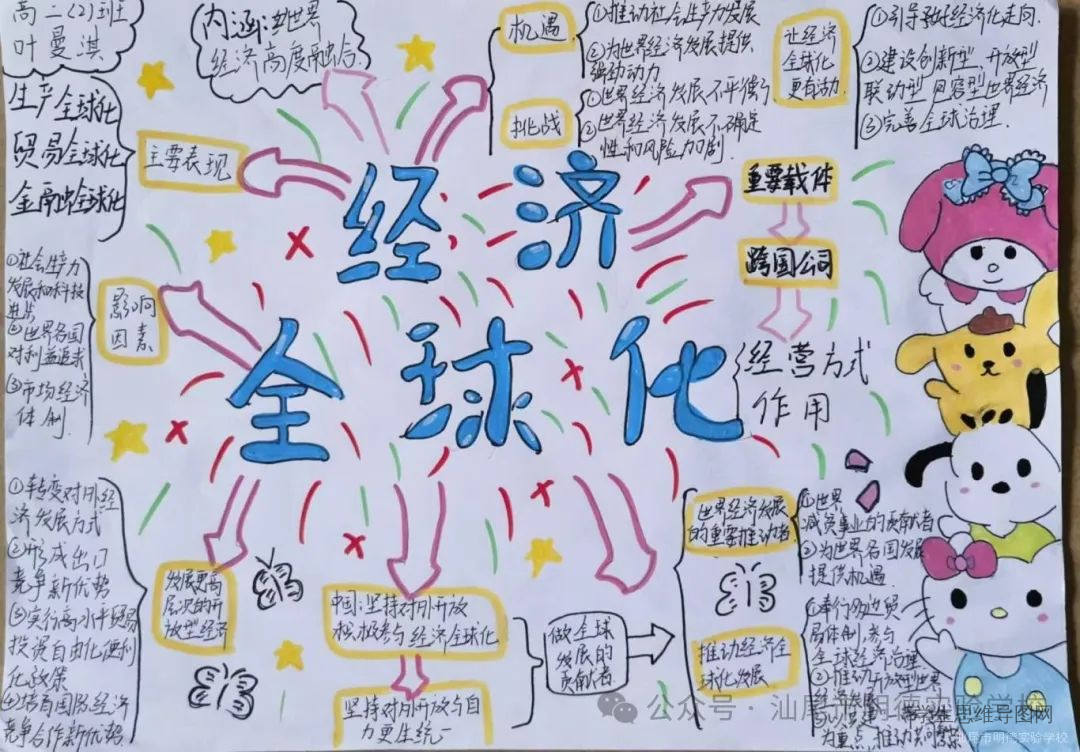 高二(2)班
叶曼淇
内涵:世界
经济高度融合
机遇
①推动社会生产力发展
②为世界经济发展提供
动力
挑战
①世界经济发展不平衡
②世界经济发展不确定
性和风险加剧
让经济
全球化
更有活力
①引导好经济化走向
②建设创新型、开放型
联动型、包容型世界经济
③完善全球治理
主要表现
生产全球化
贸易全球化
金融全球化
重要载体
跨国公司
经营方式
作用
影响
因素
①社会生产力
发展和科技
进步
②世界各国
对利益追求
③市场经济
体制
经济
全球化
发展更高
层次的开
放型经济
①转变对外经
济发展方式
②形成出口
竞争新优势
③实行高水平贸易
投资自由化便利
化政策
④培育国际经济
竞争合作新优势
中国:坚持对外开放
积极参与经济全球化
坚持对外开放与自
力更生统一
做全球
发展的
贡献者
世界经济发展
的重要推动者
①世界
减贫事业的贡献者
②为世界各国发展
提供机遇
推动经济全
球化发展
①奉行多边贸
易体制,参与
全球经济治理
②推动开放型世界
为重点,推动共同
公众号·汕尾市明德实验学校
思维导图网
汕尾市明德实验学校